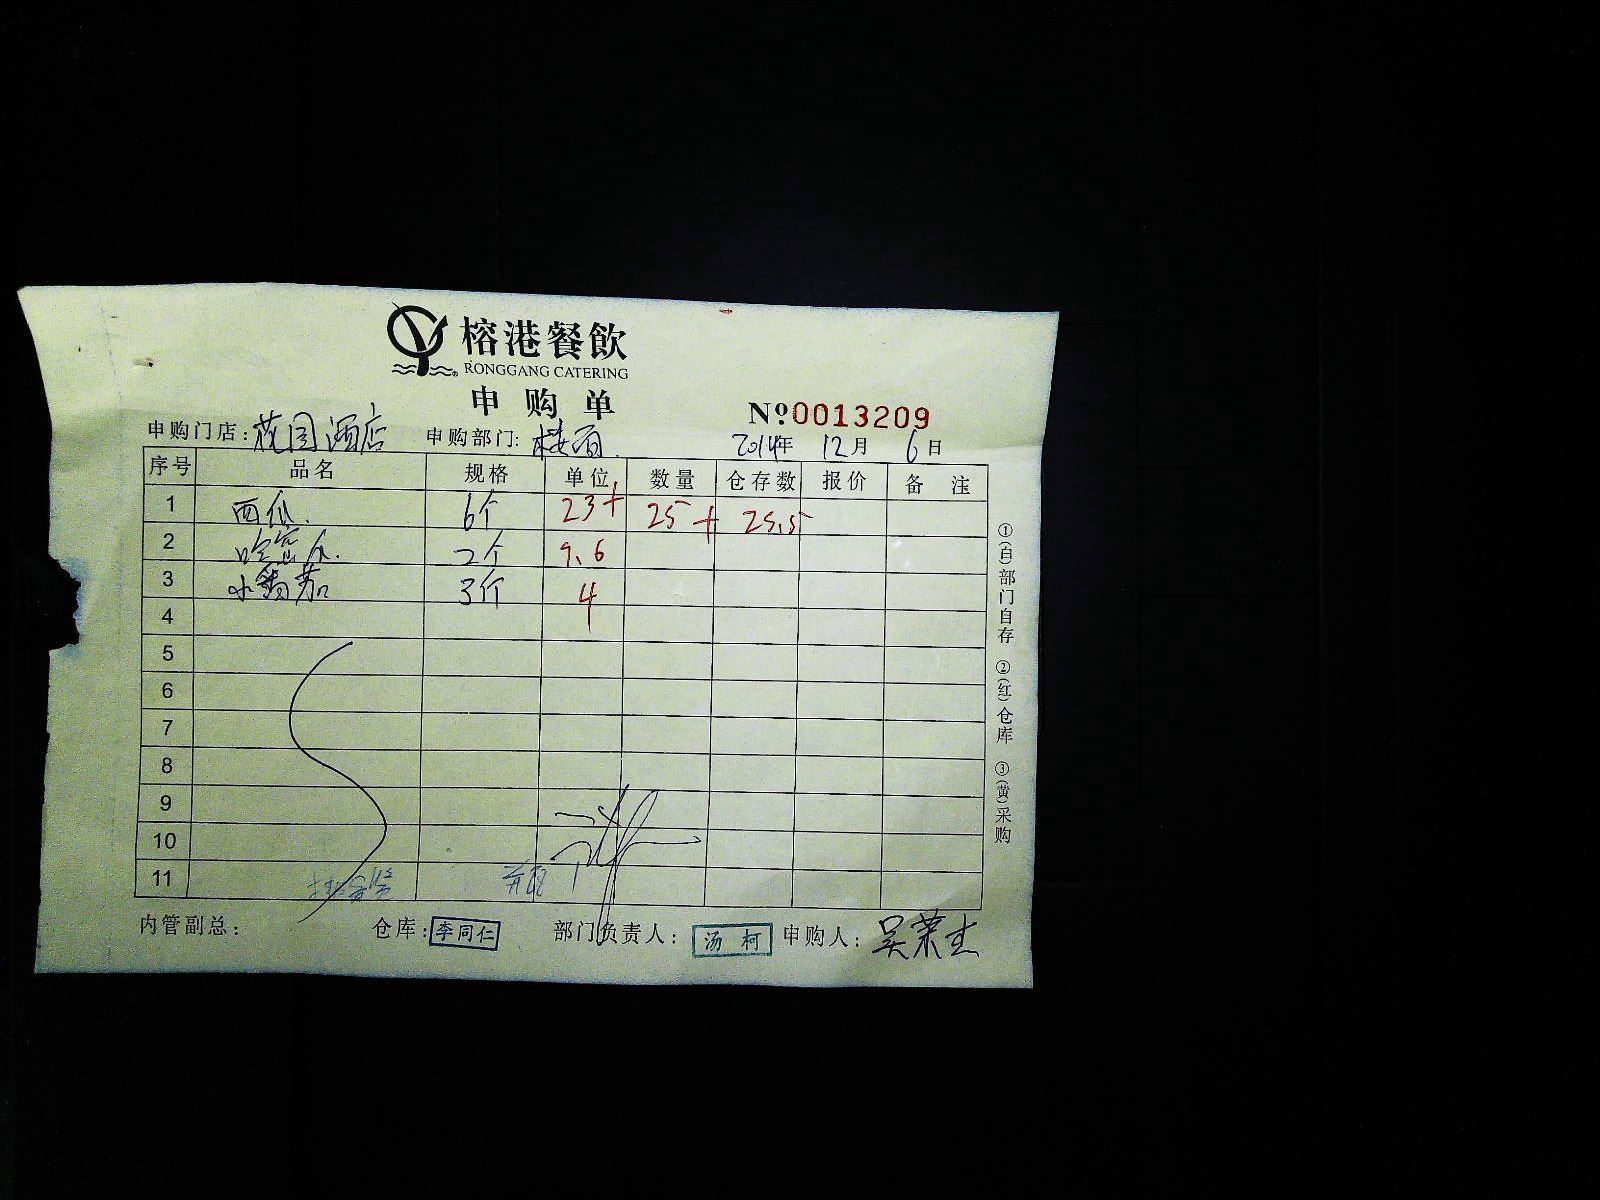 榕港餐飲
RONGGANG CATERING
申购单
№0013209
申购门店: 花园酒店 申购部门: 楼面. 2014年 12月 6日
序号 品名 规格 单位 数量 仓存数 报价 备注
1 西瓜. 6个 23+ 25+ 25.5
2 哈密瓜. 2个 9.6
3 小番茄 3斤 4
4
5
6
7
8
9
10
11
内管副总: 仓库: 李同仁 部门负责人: 汤柯 申购人: 吴荣杰
①(白)部门自存 ②(红)仓库 ③(黄)采购